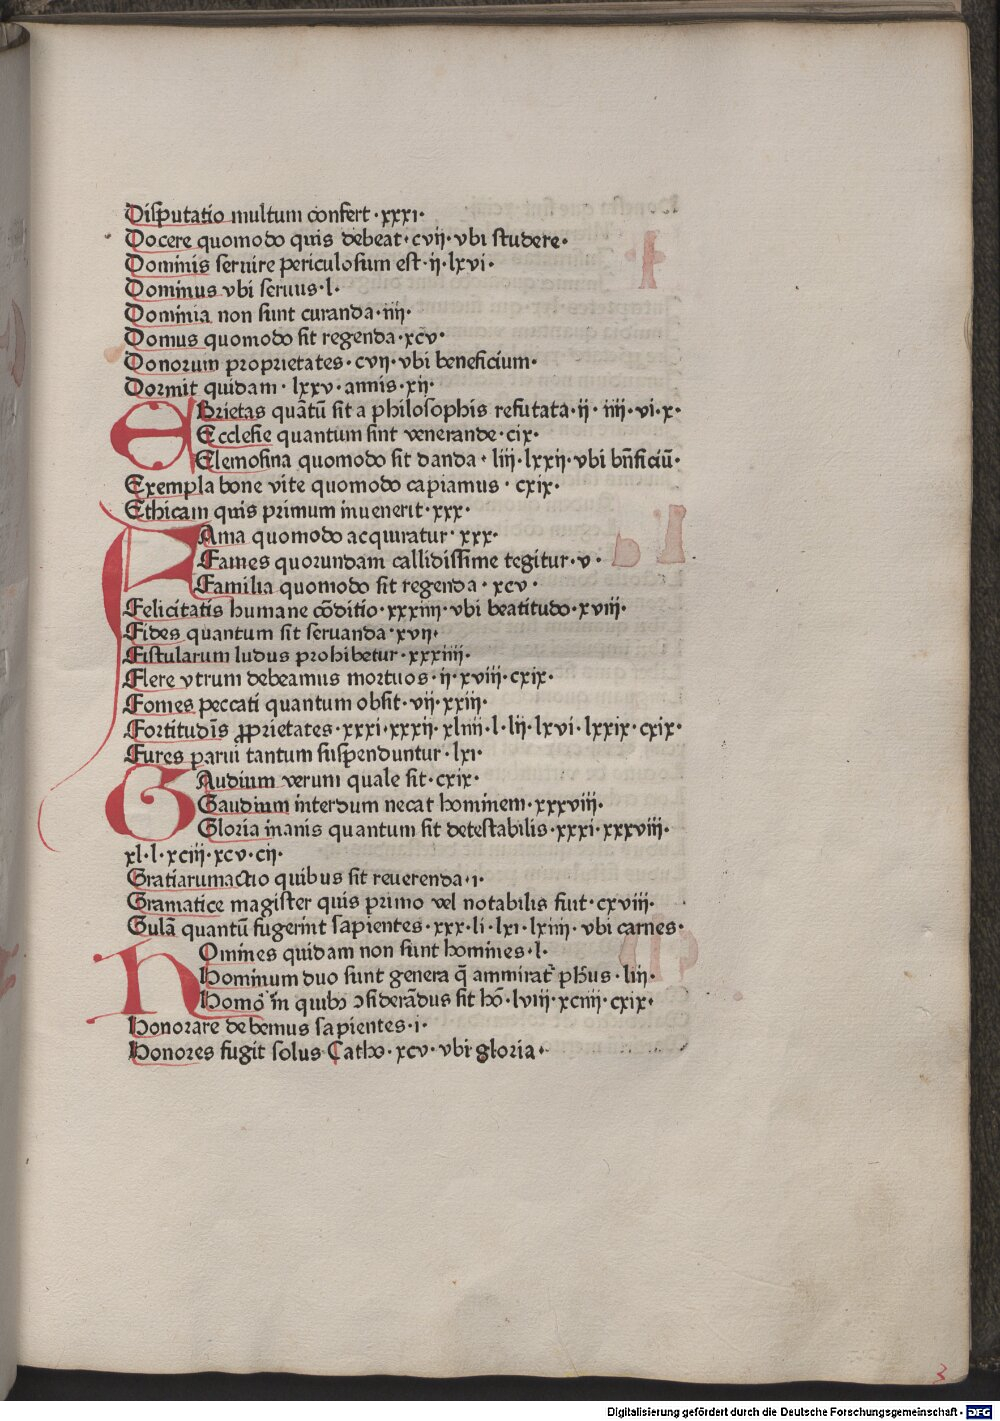 Disputatio multum confert·xxxi·
Docere quomodo quis debeat·cvij·vbi studere·
Dominis seruire periculosum est·ij·lxvi·
Dominus vbi seruus·l·
Dominia non sunt curanda·iiij·
Domus quomodo sit regenda·xcv·
Donorum proprietates·cvij·vbi beneficium·
Dormit quidam·lxxv·annis·xij·
EBrietas quãtũ sit a philosophis refutata·ij·iiij·vi·x·
Ecclesie quantum sint venerande·cix·
Elemosina quomodo sit danda·liij·lxxij·vbi bñficiũ·
Exempla bone vite quomodo capiamus·cxix·
Ethicam quis primum inuenerit·xxx·
FAma quomodo acquiratur·xxx·
Fames quorundam callidissime tegitur·v·
Familia quomodo sit regenda·xcv·
Felicitatis humane cõditio·xxxiiij·vbi beatitudo·xviij·
Fides quantum sit seruanda·xvij·
Fistularum ludus prohibetur·xxxiiij·
Flere vtrum debeamus mortuos·ij·xviij·cxix·
Fomes peccati quantum obsit·vij·xxiij·
Fortitudĩs ꝓprietates·xxxi·xxxij·xliiij·l·lij·lxvi·lxxix·cxix·
Fures parui tantum suspenduntur·lxi·
GAudium verum quale sit·cxix·
Gaudium interdum necat hominem·xxxviij·
Gloria inanis quantum sit detestabilis·xxxi·xxxviij·
xl·l·xciij·xcv·cij·
Gratiarumactio quibus sit reuerenda·i·
Gramatice magister quis primo vel notabilis fiut·cxviij·
Gulã quantũ fugerint sapientes·xxx·li·lxi·lxiiij·vbi carnes·
HOmines quidam non sunt homines·l·
Hominum duo sunt genera q̃ ammirat᷑ ph̃us·liij·
Homo ĩn quibꝫ ꝯsiderãdus sit hõ·lviij·xciiij·cxix·
Honorare debemus sapientes·i·
Honores fugit solus Catho·xcv·vbi gloria·
3
Digitalisierung gefördert durch die Deutsche Forschungsgemeinschaft - DFG